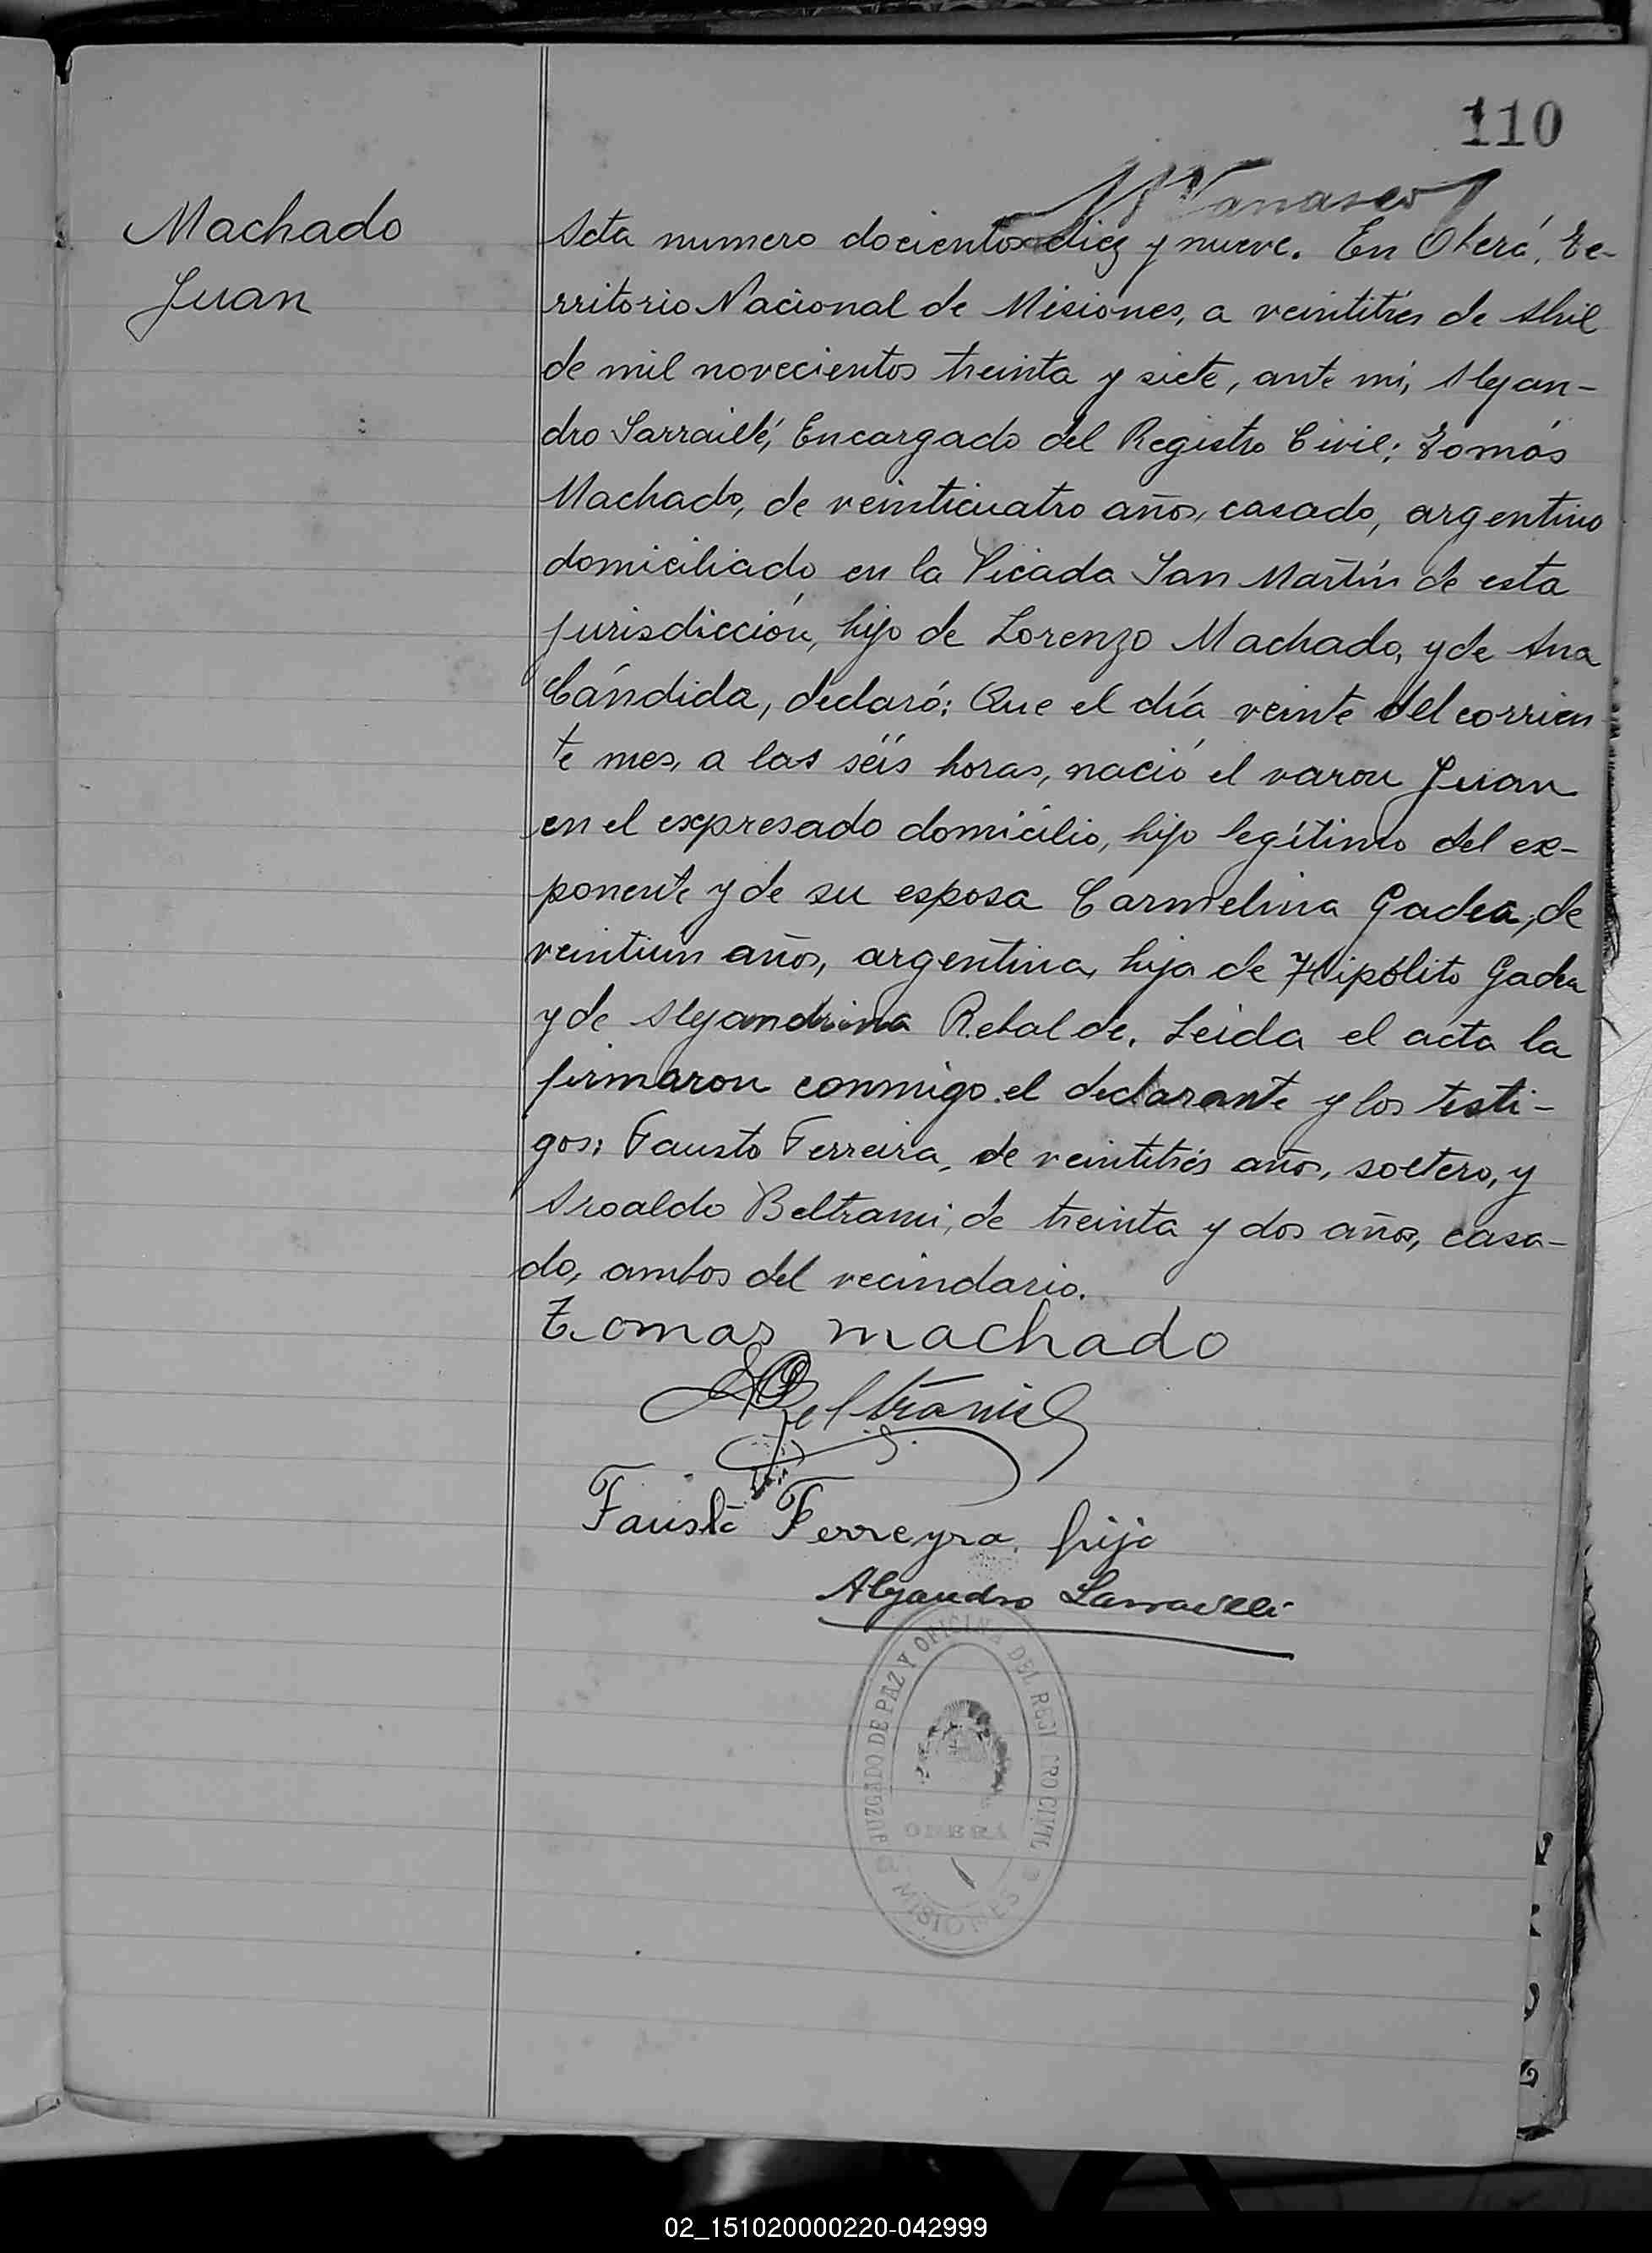 110
Machado
Juan
Acta numero docientos diez y nueve. En Oberá, Te-
rritorio Nacional de Misiones, a veintitrés de Abril
de mil novecientos treinta y siete, ante mi, Alejan-
dro Sarraillé, Encargado del Registro Civil; Tomás
Machado, de veinticuatro años, casado, argentino
domiciliado en la Picada San Martín de esta
jurisdicción, hijo de Lorenzo Machado, y de Ana
Cándida, declaró: Que el día veinte del corrien
te mes, a las séis horas, nació el varon Juan
en el expresado domicilio, hijo legítimo del ex-
ponente y de su esposa Carmelina Gadea, de
veintiun años, argentina, hija de Hipólito Gadea
y de Alejandrina Rebalde. Leida el acta la
firmaron conmigo el declarante y los testi-
gos: Fausto Ferreira, de veintitrés años, soltero, y
Aroaldo Beltrami, de treinta y dos años, casa-
do, ambos del vecindario.
Tomas machado
ABeltrami
Fausto Ferreyra hijo
Alejandro Sarraillé
JUZGADO DE PAZ Y OFICINA DEL REGISTRO CIVIL
OBERÁ
MISIONES
02_151020000220-042999